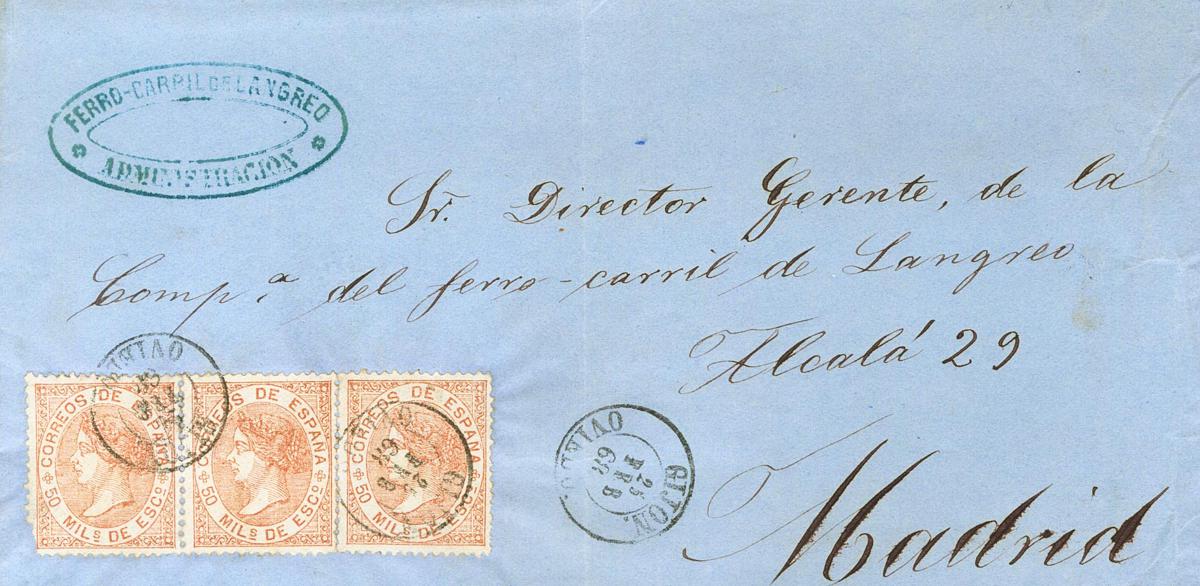 FERRO-CARRIL DE LANGREO
ADMINISTRACION
Sr. Director Gerente, de la
Comp.a del ferro-carril de Langreo
Alcalá 29
Madrid
CORREOS DE ESPAÑA
50 MILS DE ESCO
CORREOS DE ESPAÑA
50 MILS DE ESCO
CORREOS DE ESPAÑA
50 MILS DE ESCO
OVIEDO
GIJON
GIJON.
25
FEB
68
OVIEDO.